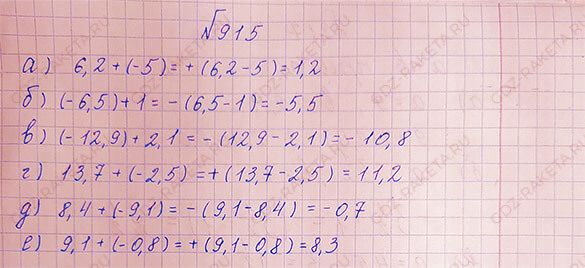 №915
а) 6,2 + (-5) = + (6,2 - 5) = 1,2
б) (-6,5) + 1 = - (6,5 - 1) = -5,5
в) (-12,9) + 2,1 = - (12,9 - 2,1) = - 10,8
г) 13,7 + (-2,5) = + (13,7 - 2,5) = 11,2
д) 8,4 + (-9,1) = - (9,1 - 8,4) = -0,7
е) 9,1 + (-0,8) = + (9,1 - 0,8) = 8,3